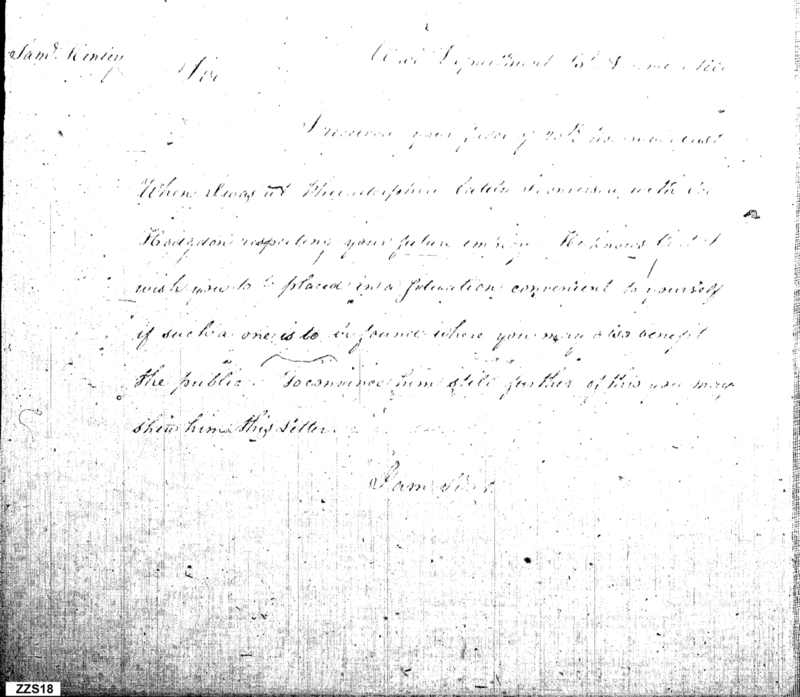 Saml.
Sir
War Department
I received your favor of
When I was at Philadelphia lately I conversed with
Hodgdon respecting your future He knows that I
wish you to be placed in a situation convenient to yourself
if such a one is to be found where you may also benefit
the public. To convince him still further of this you may
shew him this Letter.
I am Sir
ZZS18